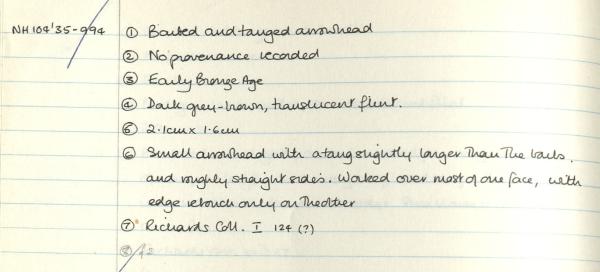 NH104'35-994
① Barbed and tanged arrowhead
② No provenance recorded
③ Early Bronze Age
④ Dark grey-brown, translucent flint.
⑤ 2.1cm x 1.6cm
⑥ Small arrowhead with a tang slightly longer than the barbs,
and roughly straight sides. Worked over most of one face, with
edge retouch only on the other
⑦ Richards Coll. I 124 (?)
⑧